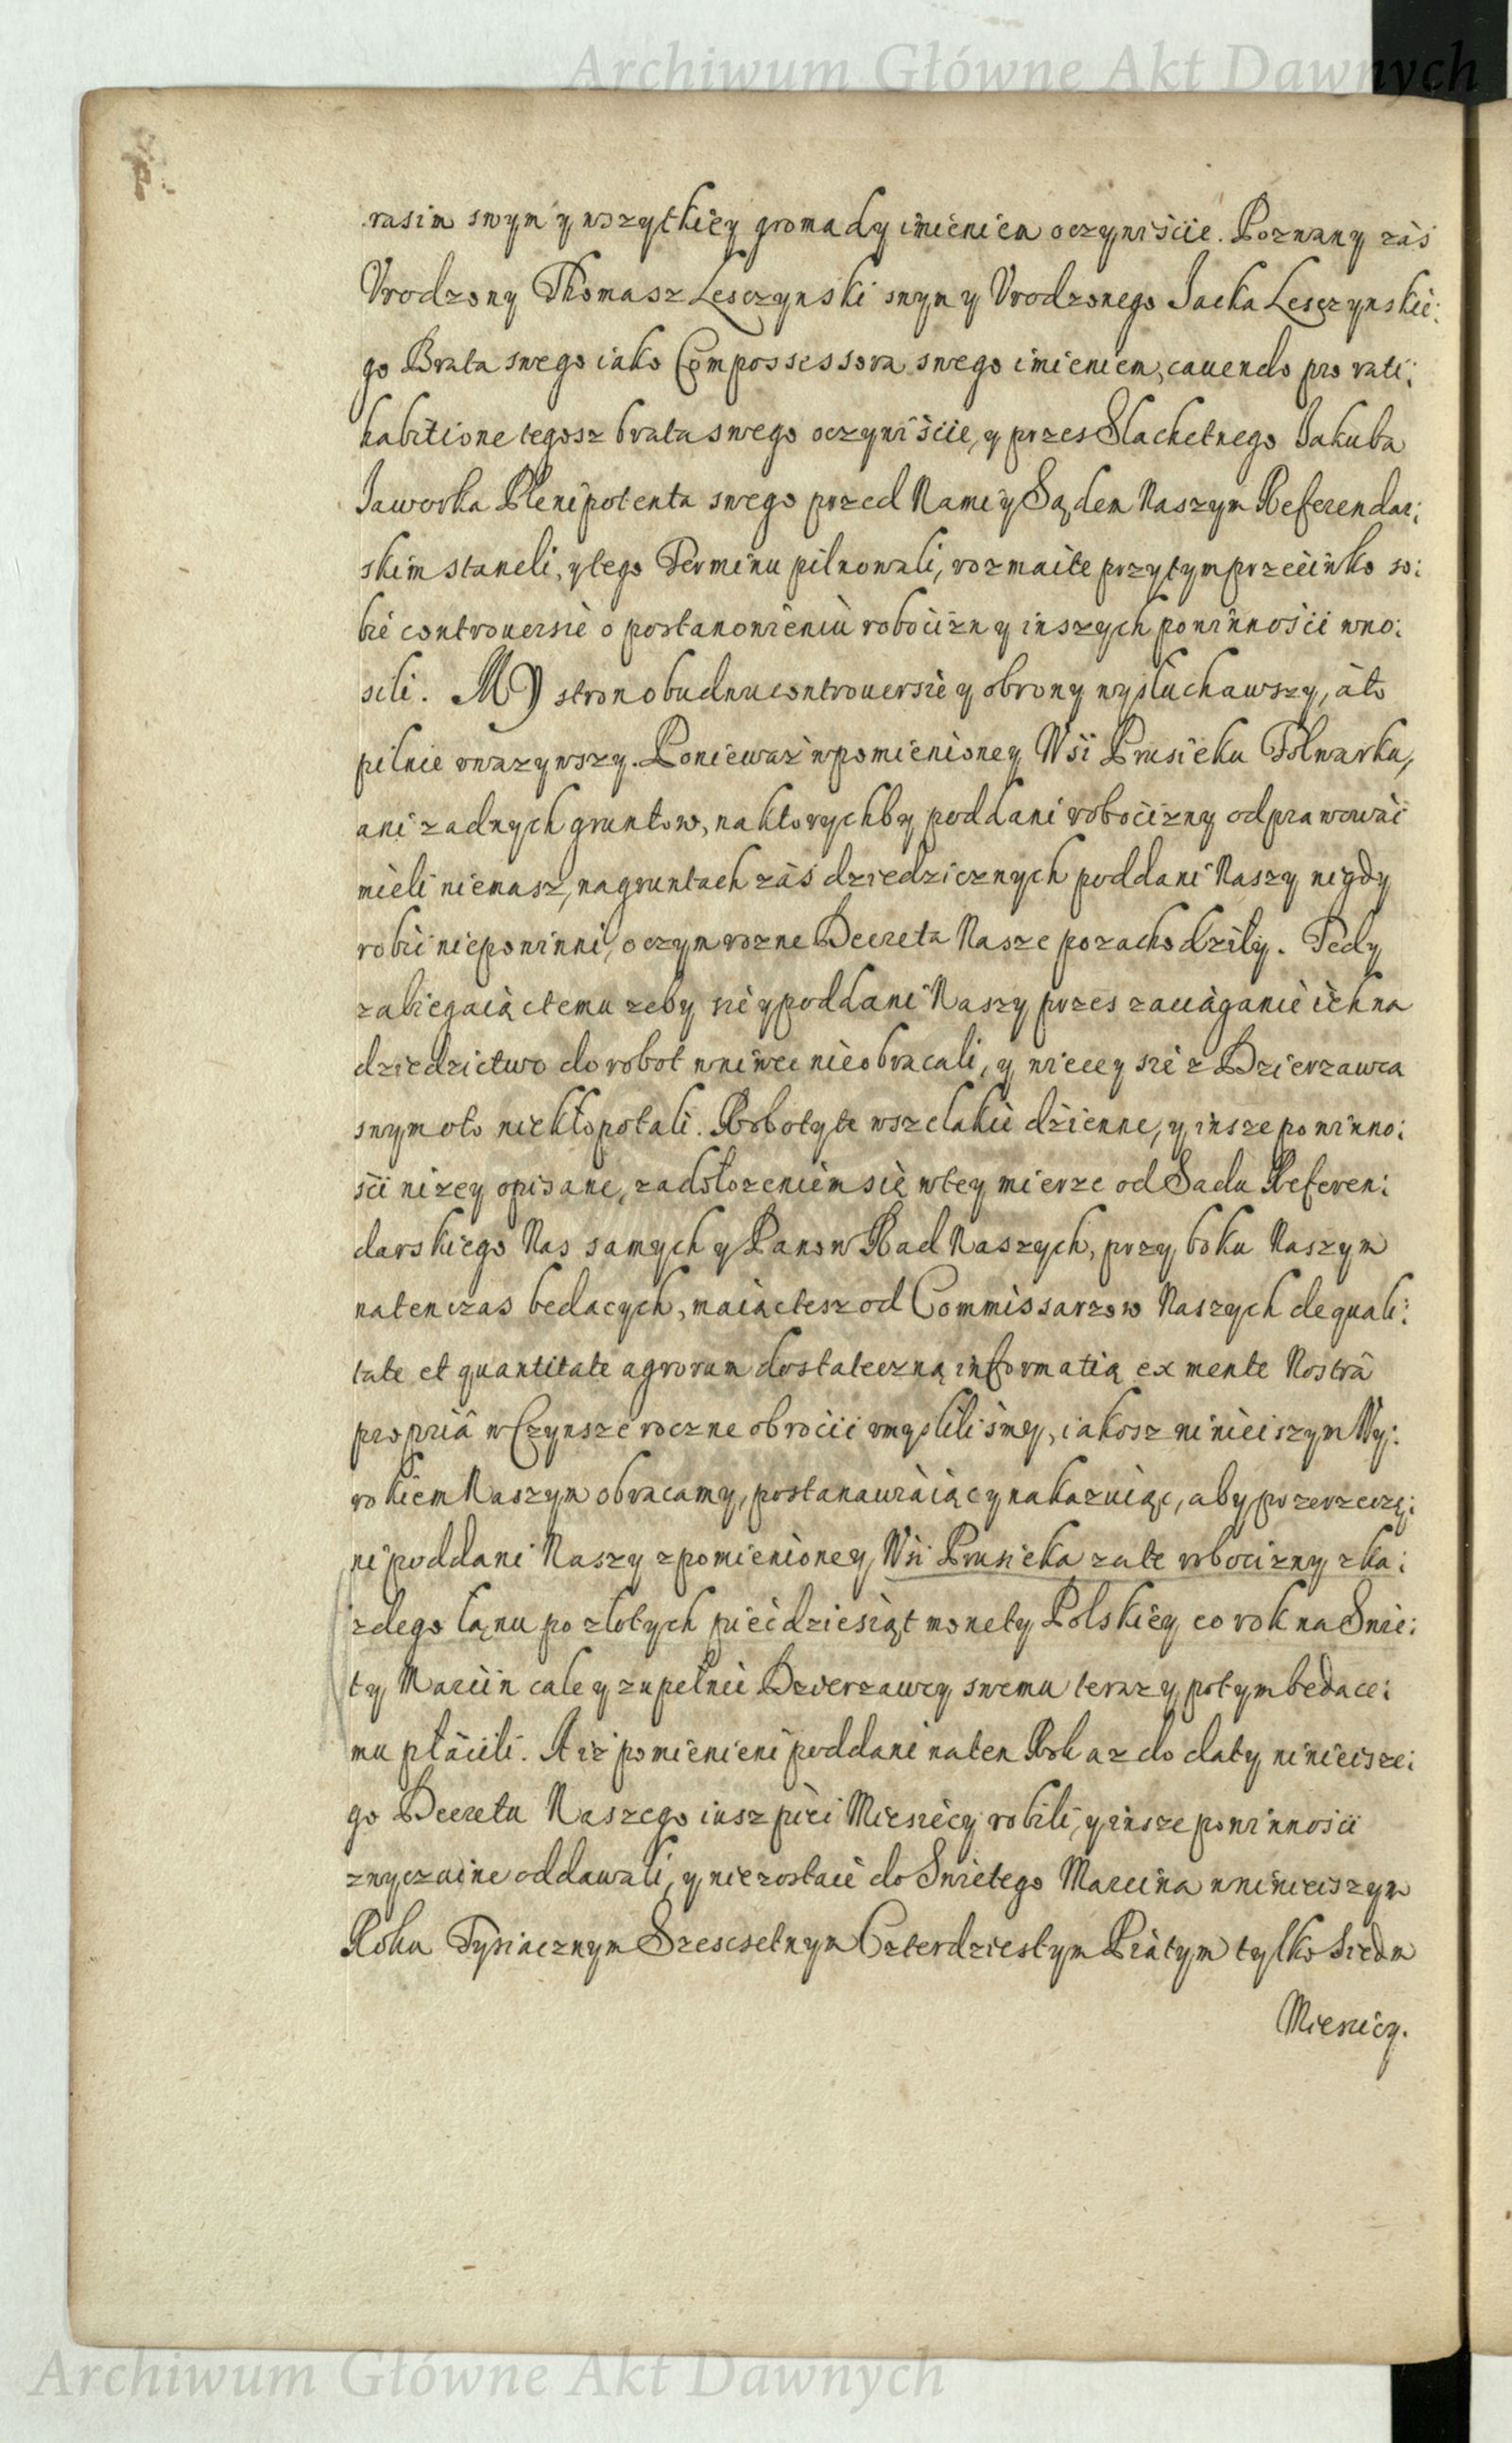 Archiwum Główne Akt Dawnych
p.
rasim swym y wszytkiey gromady imieniem oczywiście. Pozwany záś
Vrodzony Thomasz Lesczynski swym y Vrodzonego Jacka Lesczynskie:
go Brata swego iako Compossessora swego imieniem, cauendo pro rati:
habitione tegosz brata swego oczywiście, y przes Slachetnego Jakuba
Jaworka Plenipotenta swego przed Nami y Sądem Naszym Referendar:
skim staneli, y tego Terminu pilnowali, rozmaite przytym przeciwko so:
bie controuersie o postanowieniu robocizny inszych powinności wno:
sili. MY stron obudwu controuersie y obrony wysłuchawszy, á to
pilnie vwazywszy. Poniewaz w pomienioney Wsi Prusieku Folwarku,
ani zadnych gruntow, na ktorychby poddani robocizny odprawować
mieli niemasz, na gruntach záś dziedzicznych poddani Naszy nigdy
robić niepowinni, o czym rozne Decreta Nasze pozachodziły. Tedy
zabiegaiąc temu zeby się y poddani Naszy przes zaciąganie ich na
dziedzictwo do robot wniwec nieobracali, y wiecey się z Dzierzawca
swym oto niekłopotali. Roboty te wszelakie dzienne, y insze powinno:
sci nizey opisane, zadołozeniem się w tey mierze od Sadu Referen:
darskiego Nas samych y Panow Rad Naszych, przy boku Naszym
natenczas bedacych, maiąc tesz od Commissarzow Naszych de quali:
tate et quantitate agrorum dostateczną informatią ex mente Nostrâ
propriâ w Czynsze roczne obrocić vmyslilismy, iakosz ninieiszym Wy:
rokiem Naszym obracamy, postanawiaiąc y nakazuiąc, aby pozerzeczę:
ni poddani Naszy z pomienioney Wsi Prusieka za te robocizny z ka:
zdego łanu po złotych piećdziesiąt monety Polskiey co rok na Swie:
ty Marcin cale y zupełnie Dzierzawcy swemu teraz y potym bedace:
mu płácili. A iz pomienieni poddani na ten Rok az do daty ninieisze:
go Decretu Naszego iusz pięć Miesięcy robili, y insze powinnosci
zwyczaine oddawali, y niezostaie do Swietego Marcina w ninieiszym
Roku Tysiacznym Szescsetnym Czterdziestym Piątym tylko Siedm
Miesięcy.
Archiwum Główne Akt Dawnych